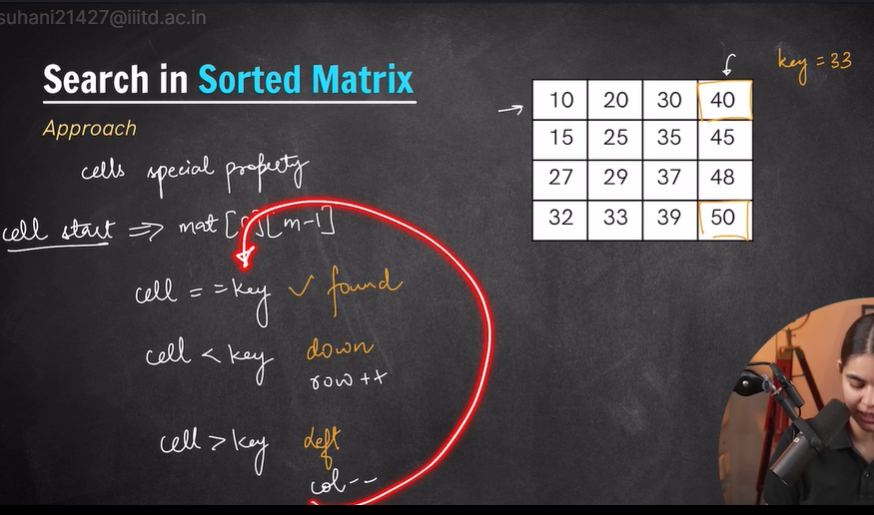 suhani21427@iiitd.ac.in
Search in Sorted Matrix
Approach
cells special property
cell start => mat [ ][m-1]
cell == key ✓ found
cell < key down
row ++
cell > key left
col--
key = 33
10 20 30 40
15 25 35 45
27 29 37 48
32 33 39 50